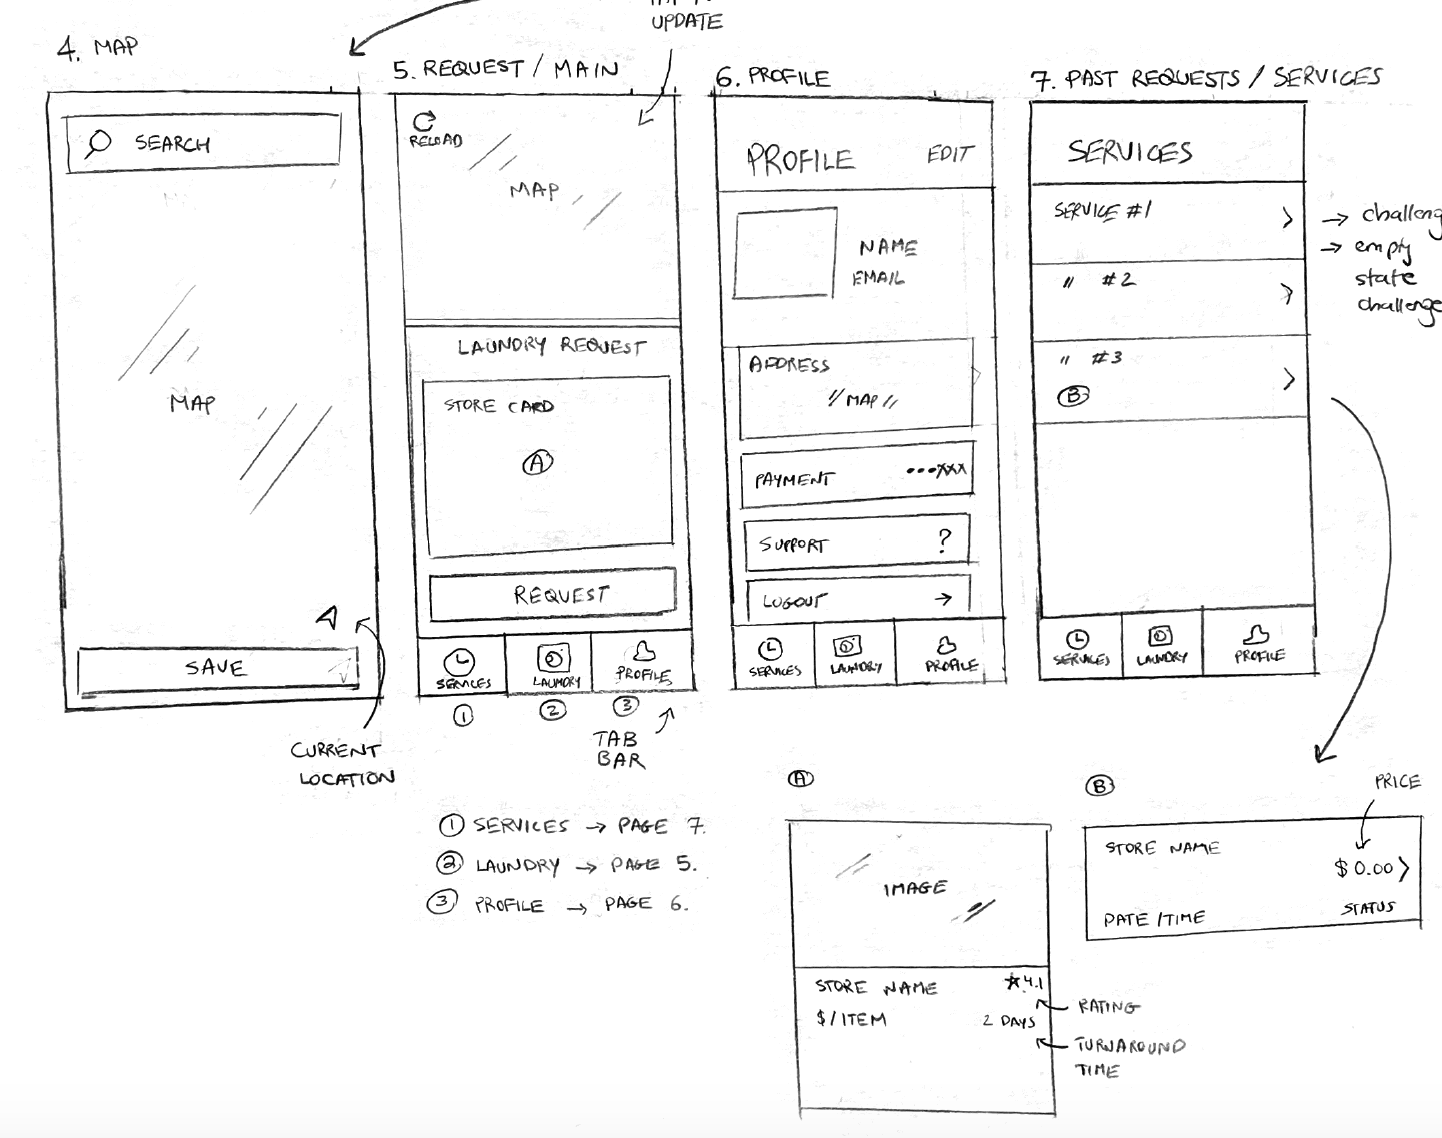 UPDATE
4. MAP
SEARCH
MAP
SAVE
CURRENT
LOCATION
5. REQUEST / MAIN
RELOAD
MAP
LAUNDRY REQUEST
STORE CARD
A
REQUEST
SERVICES
LAUNDRY
PROFILE
1
2
3
TAB
BAR
6. PROFILE
PROFILE EDIT
NAME
EMAIL
ADDRESS
// MAP //
PAYMENT •••XXX
SUPPORT ?
LOGOUT →
SERVICES
LAUNDRY
PROFILE
7. PAST REQUESTS / SERVICES
SERVICES
SERVICE #1 >
" #2 >
" #3 >
B
SERVICES
LAUNDRY
PROFILE
→ challeng
→ empty
state
challenge
1 SERVICES → PAGE 7.
2 LAUNDRY → PAGE 5.
3 PROFILE → PAGE 6.
A
IMAGE
STORE NAME ★4.1
$/ITEM 2 DAYS
RATING
TURNAROUND
TIME
B
PRICE
STORE NAME
$0.00 >
DATE/TIME STATUS